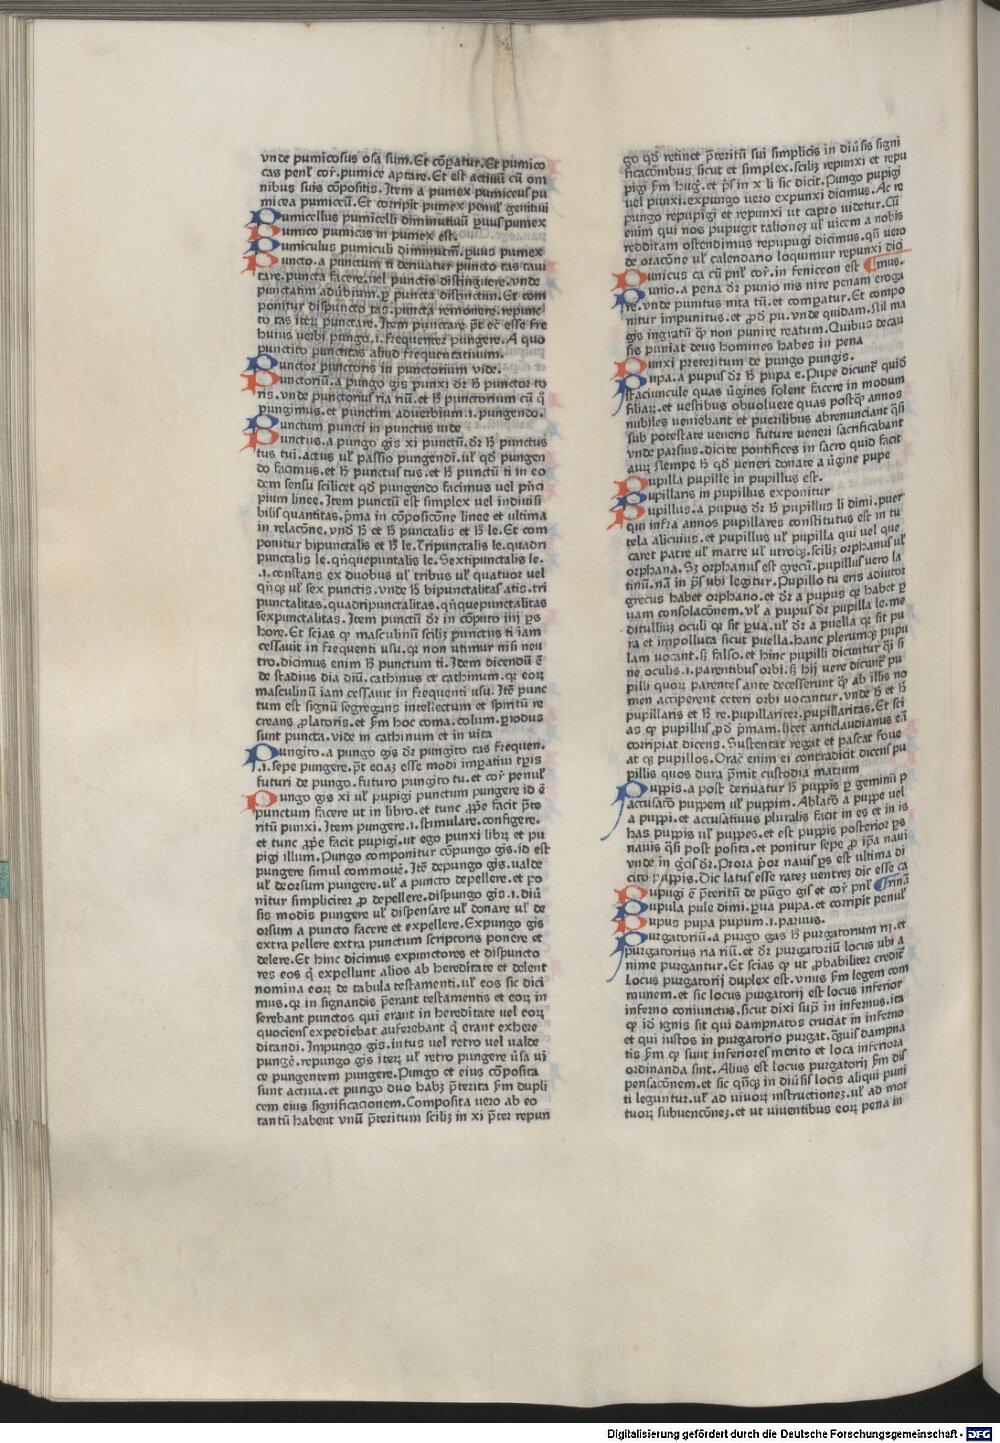 vnde pumicosus osa sum. Et cōpatur. Et pumico
cas penł cor̄. pumice aptare. Et est actiuū cū om
nibus suis cōpositis. Item a pumex pumiceus pu
micea pumiceū. Et corripit pumex penuł genitiui
Pumicellus pumicelli diminutiuū puus pumex
Pumico pumicas in pumex est.
Pumiculus pumiculi diminutm̄. puus pumex
Puncto. a punctum ti deriuatur puncto tas taui
tare. puncta facere. uel punctis distinguere. vnde
punctatim adūbium. ꝑ puncta distinctim. Et com
ponitur dispuncto tas. puncta remouere. repunc
to tas iteꝝ punctare. Item punctare. p̄t ec̄ esse fre
huius verbi pungo. i. frequenter pungere. A quo
punctito punctitas aliud frequentatiuum.
Punctor punctoris in punctorium vide.
Punctoriū. a pungo gis punxi dr̄ ħ punctor to
ris. vnde punctorius ria riū. et ħ punctorium cū q̄
pungimus. et punctim aduerbium. i. pungendo.
Punctum puncti in punctus uide
Punctus. a pungo gis xi punctū. dr̄ ħ punctus
tus tui. actus uł passio pungendi. uł qđ pungen
do facimus. et ħ punctus tus. et ħ punctū ti in eo
dem sensu scilicet qđ pungendo facimus vel pn̄ci
pium linee. Item punctū est simplex vel indiuisi
bilis quantitas. pm̄a in cōposicōne linee et ultima
in relacōne. vnđ ħ et ħ punctalis et ħ le. Et com
ponitur bipunctalis et ħ le. Tripunctalis le. quadri
punctalis le. qn̄quepuntalis le. Sextipunctalis le.
.i. constans ex duobus uł tribus uł quatuor vel
qn̄qꝫ uł sex punctis. vnde ħ bipunctalitas atis. tri
punctalitas. quadripunctalitas. qn̄quepunctalitas
sexpunctalitas. Item punctū dr̄ in cōputo iiij ps
hore. Et scias ꝙ masculinū sciliꝫ punctus ti iam
cessauit in frequenti usu. qꝛ non utimur nisi neu
tro. dicimus enim ħ punctum ti. Item dicendū ē
de stadius dia diū. cathinus et cathinum. qꝛ eoꝝ
masculinū iam cessauit in frequenti usu. Itē punc
tum est signū segregans intellectum et spiritū re
creans ꝓlatoris. et ꝼm hoc coma. colum. ꝑiodus
sunt puncta. vide in cathinum et in vita
Pungito. a pungo gis dr̄ pungito tas frequen.
.i. sepe pungere. p̄t eciaꝫ esse modi impatiui tp̄is
futuri de pungo. futuro pungito tu. et cor̄ penuł
Pungo gis xi uł pupigi punctum pungere id ē
punctum facere ut in libro. et tunc ꝓp̄e facit p̄te
ritū punxi. Item pungere. i. stimulare. configere.
et tunc ꝓp̄e facit pupigi. ut ego punxi libꝝ et pu
pigi illum. Pungo componitur cōpungo gis. id est
pungere simul commouē. Itē depungo gis. ualde
uł deorsum pungere. uł a puncto depellere. et po
nitur simpliciter ꝓ depellere. dispungo gis. i. diū
sis modis pungere uł dispensare uł donare uł de
orsum a puncto facere et expellere. Expungo gis
extra pellere extra punctum scriptoris ponere et
delere. Et hinc dicimus expunctores et dispuncto
res eos q̄ expellunt alios ab hereditate et delent
nomina eoꝝ de tabula testamenti. uł eos sic dici
mus. qꝛ in signandis perant testamentis et eoꝝ in
serebant punctos qui erant in hereditate uel eoꝝ
quociens expediebat auferebant q̄ erant exhere
ditandi. Impungo gis. intus uel retro uel ualde
pungē. repungo gis iteꝝ uł retro pungere ūsa ui
ce pungentem pungere. Pungo et eius cōposita
sunt actiua. et pungo duo habꝫ p̄terita ꝼm dupli
cem eius significacionem. Composita uero ab eo
tantū habent vnū p̄teritum sciliꝫ in xi p̄ter repun
go qđ retinet p̄teritū sui simplicis in diūsis signi
ficacōnibus sicut et simplex. sciliꝫ repunxi et repu
pigi ꝼm huḡ. et p̄s in x li sic dicit. Pungo pupigi
uel punxi. expungo uero expunxi dicimus. Ac re
pungo repupigi et repunxi ut capro uidetur. Cū
enim qui nos pupugit talioneꝫ uł uicem a nobis
redditam ostendimus repupugi dicimus. qn̄ uero
de oracōne uł calendario loquimur repunxi dici
Punicus ca cū pnł cor̄. in feniceon est ¶mus.
Punio. a pena dr̄ punio nis nire penam eroga
re. vnde punitus nita tū. et compatur. Et compo
nitur impunitus. et ꝓđ pu. vnde quidam. Nil ma
gis ingratū ꝙ non punire reatum. Quibus de cau
sis puniat deus homines habes in pena
Punxi preteritum de pungo pungis.
Pupa. a pupus dr̄ ħ pupa e. Pupe dicunt̄ quiđ
staciuncule quas ūgines solent facere in modum
filiaꝝ. et uestibus obuoluere quas postꝙ annos
nubiles ueniebant et puerilibus abrenunciant q̄si
sub potestate ueneris future ueneri sacrificabant
vnde parsius. dicite pontifices in sacro quid facit
auꝝ Nempe ħ qđ ueneri donate a ūgine pupe
Pupilla pupille in pupillus est.
Pupillaris in pupillus exponitur
Pupillus. a pupus dr̄ ħ pupillus li dimi. puer
qui infra annos pupillares constitutus est in tu
tela alicuius. et pupillus uł pupilla qui uel que
caret patre uł matre uł utroqꝫ. sciliꝫ orphanus uł
orphana. Sꝫ orphanus est grecū. pupillus uero la
tinū. nā in p̄s ubi legitur. Pupillo tu eris adiutor
grecus habet orphano. et dr̄ a pupus qꝛ habet ꝑ
uam consolacōnem. vł a pupus dr̄ pupilla le. me
ditullius oculi qꝛ sit pua. uł dr̄ a puella qꝛ sit pu
ra et impolluta sicut puella. hanc plerumqꝫ pupu
lam uocant. sꝫ falso. et hinc pupilli dicuntur q̄si si
ne oculis. i. parentibus orbi. sꝫ hij vere dicunt̄ pu
pilli quoꝝ parentes ante decesserunt ꝙ ab illis no
men acciperent ceteri orbi uocantur. vnde ħ et ħ
pupillaris et ħ re. pupillariter. pupillaritas. Et sci
as ꝙ pupillus ꝓđ pm̄am. licet anticlaudianus eā
corripiat dicens. Sustentat regit et pascat foue
at qꝫ pupillos. Orac̄ enim ei contradicit dicens pu
pillis quos dura pm̄it custodia matrum
Puppis. a post deriuatur ħ puppis ꝑ geminū p
accusatō puppem uł puppim. Ablatō a puppe uel
a puppi. et accusatiuus pluralis facit in es et in is
has puppis uł puppes. et est puppis posterior ps
nauis q̄si post posita. et ponitur sepe ꝓ ip̄a naui
vnde in gc̄is dr̄. Prora por nauis ps est ultima di
cito puppis. Dic latus esse rateꝫ uentreꝫ dic esse ca
Pupugi ē p̄teritū de pūgo gis et cor̄ pnł ¶rinā
Pupula pule dimi. pua pupa. et corripit penuł
Pupus pupa pupum. i. paruus.
Purgatoriū. a purgo gas ħ purgatorium rij. et
purgatorius ria riū. et dr̄ purgatoriū locus ubi a
nime purgantur. Et scias ꝙ ut ꝓbabiliter credit̄
locus purgatorij duplex est. vnus ꝼm legem com
munem. et sic locus purgatorij est locus inferior
inferno coniunctus. sicut dixi sup̄ in infernus. ita
ꝙ iđ ignis sit qui dampnatos cruciat in inferno
et qui iustos in purgatorio purgat. q̄uis dampna
tis ꝼm ꝙ sunt inferiores merito et loca inferiora
ordinanda sint. Alius est locus purgatorij ꝼm dis
pensacōnem. et sic qn̄qꝫ in diūsis locis aliqui puni
ti leguntur. uł ad uiuoꝝ instructioneꝫ. uł ad mor
tuoꝝ subuencōneꝫ. et ut uiuentibus eoꝝ pena in
Digitalisierung gefördert durch die Deutsche Forschungsgemeinschaft - DFG